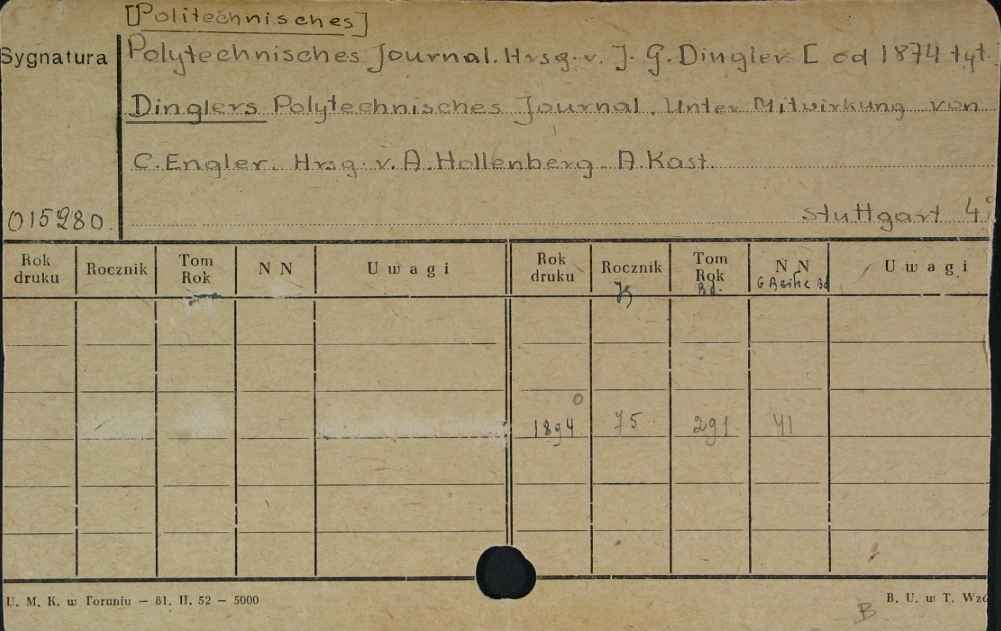 [Politechnisches]
Sygnatura
Polytechnisches Journal. Hrsg. v. J. G. Dingler [od 1874 tyt.
Dinglers Polytechnisches Journal. Unter Mitwirkung von
C. Engler. Hrsg. v. A. Hollenberg. A. Kast.
015280. Stuttgart 4°
Rok druku Rocznik Tom Rok N N Uwagi Rok druku Rocznik Tom Rok N N Uwagi
Bd. 6 Reihe Bd
1894 75 291 41
U. M. K. w Toruniu — 81. II. 52 — 5000
B. U. w T.
B